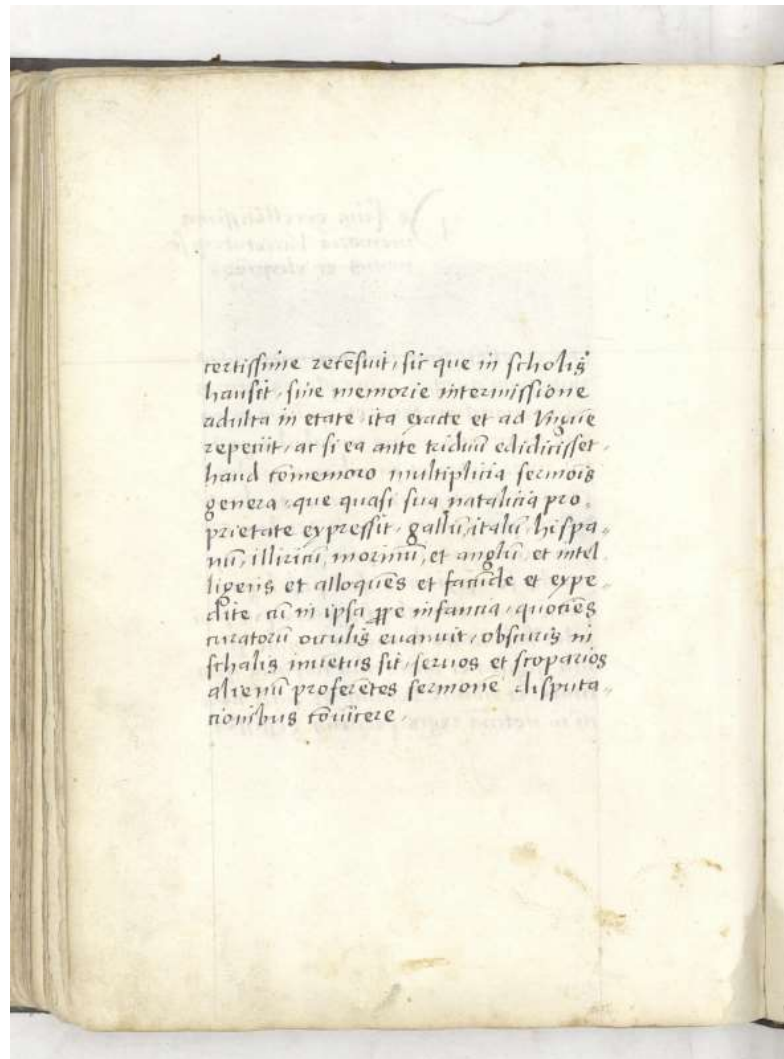 certissime recēsuit, sic que in scholis
hausit, sine memorie intermissione
adulta in etate ita exacte et ad vnguē
repetiit, ac si ea ante triduū edidicisset,
haud cōmemoro multiplicia sermōis
genera, que quasi sua natalicia pro,,
prietate expressit, gallū, italū, hispa,,
nū, illiricū, morinū, et anglū, et intel,
ligens et alloquēs et facūde et expe,,
dite, cū in ipsa ꝓpe infancia, quociēs
curatorū oculis euanuit, obscuris in
schalis inuētus sit, seruos et scoparios
alienū proferētes sermonē disputa,,
cionibus cōuīcere,